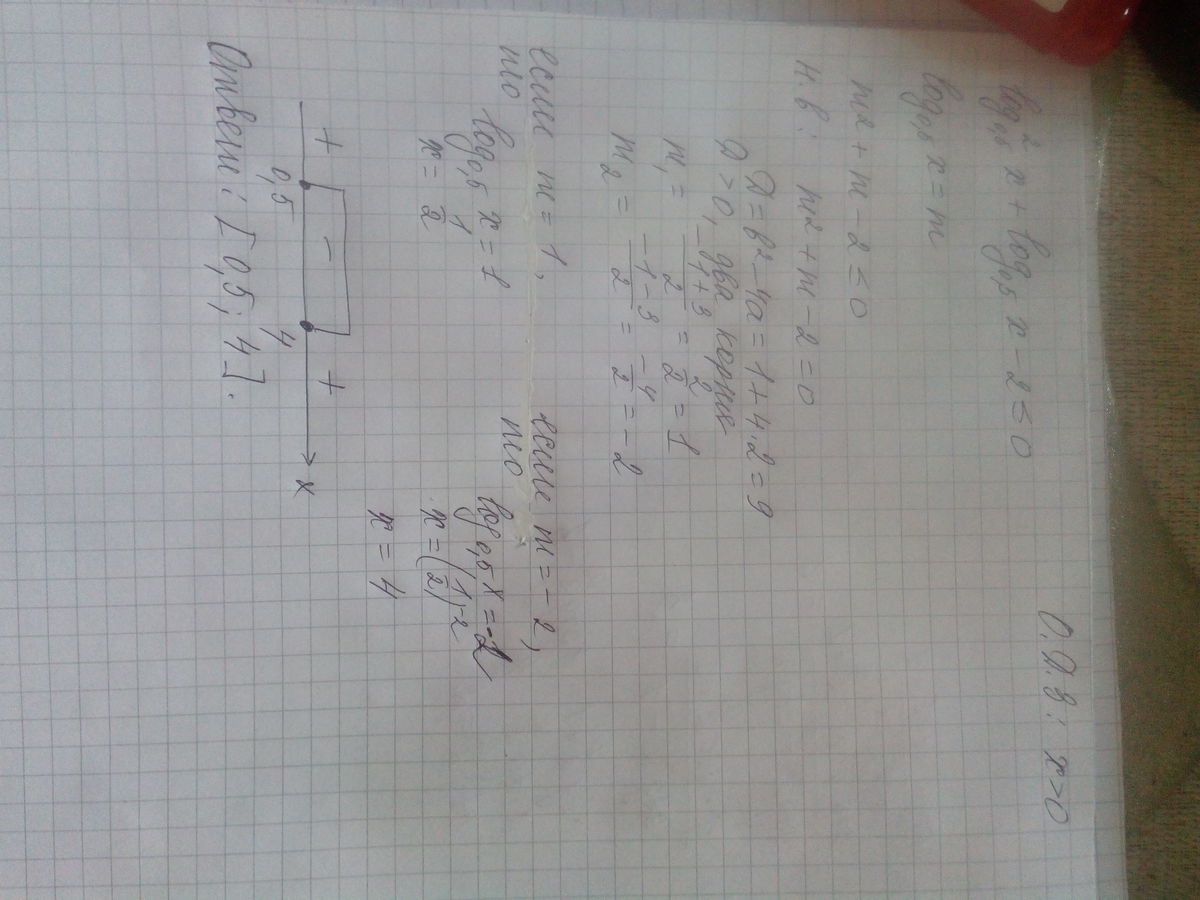 О.Д.З: x>0
log²₀,₅ x + log₀,₅ x − 2 ≤ 0
log₀,₅ x = m
m² + m − 2 ≤ 0
Н.в: m² + m − 2 = 0
D = b² − 4a = 1 + 4·2 = 9
D > 0, два корня
m₁ = (−1+3)/2 = 2/2 = 1
m₂ = (−1−3)/2 = −4/2 = −2
если m = 1,
то log₀,₅ x = 1
x = 1/2
если m = −2,
то log₀,₅ x = −2
x = (1/2)⁻²
x = 4
+ − +
0,5 4 x
Ответ: [0,5; 4].